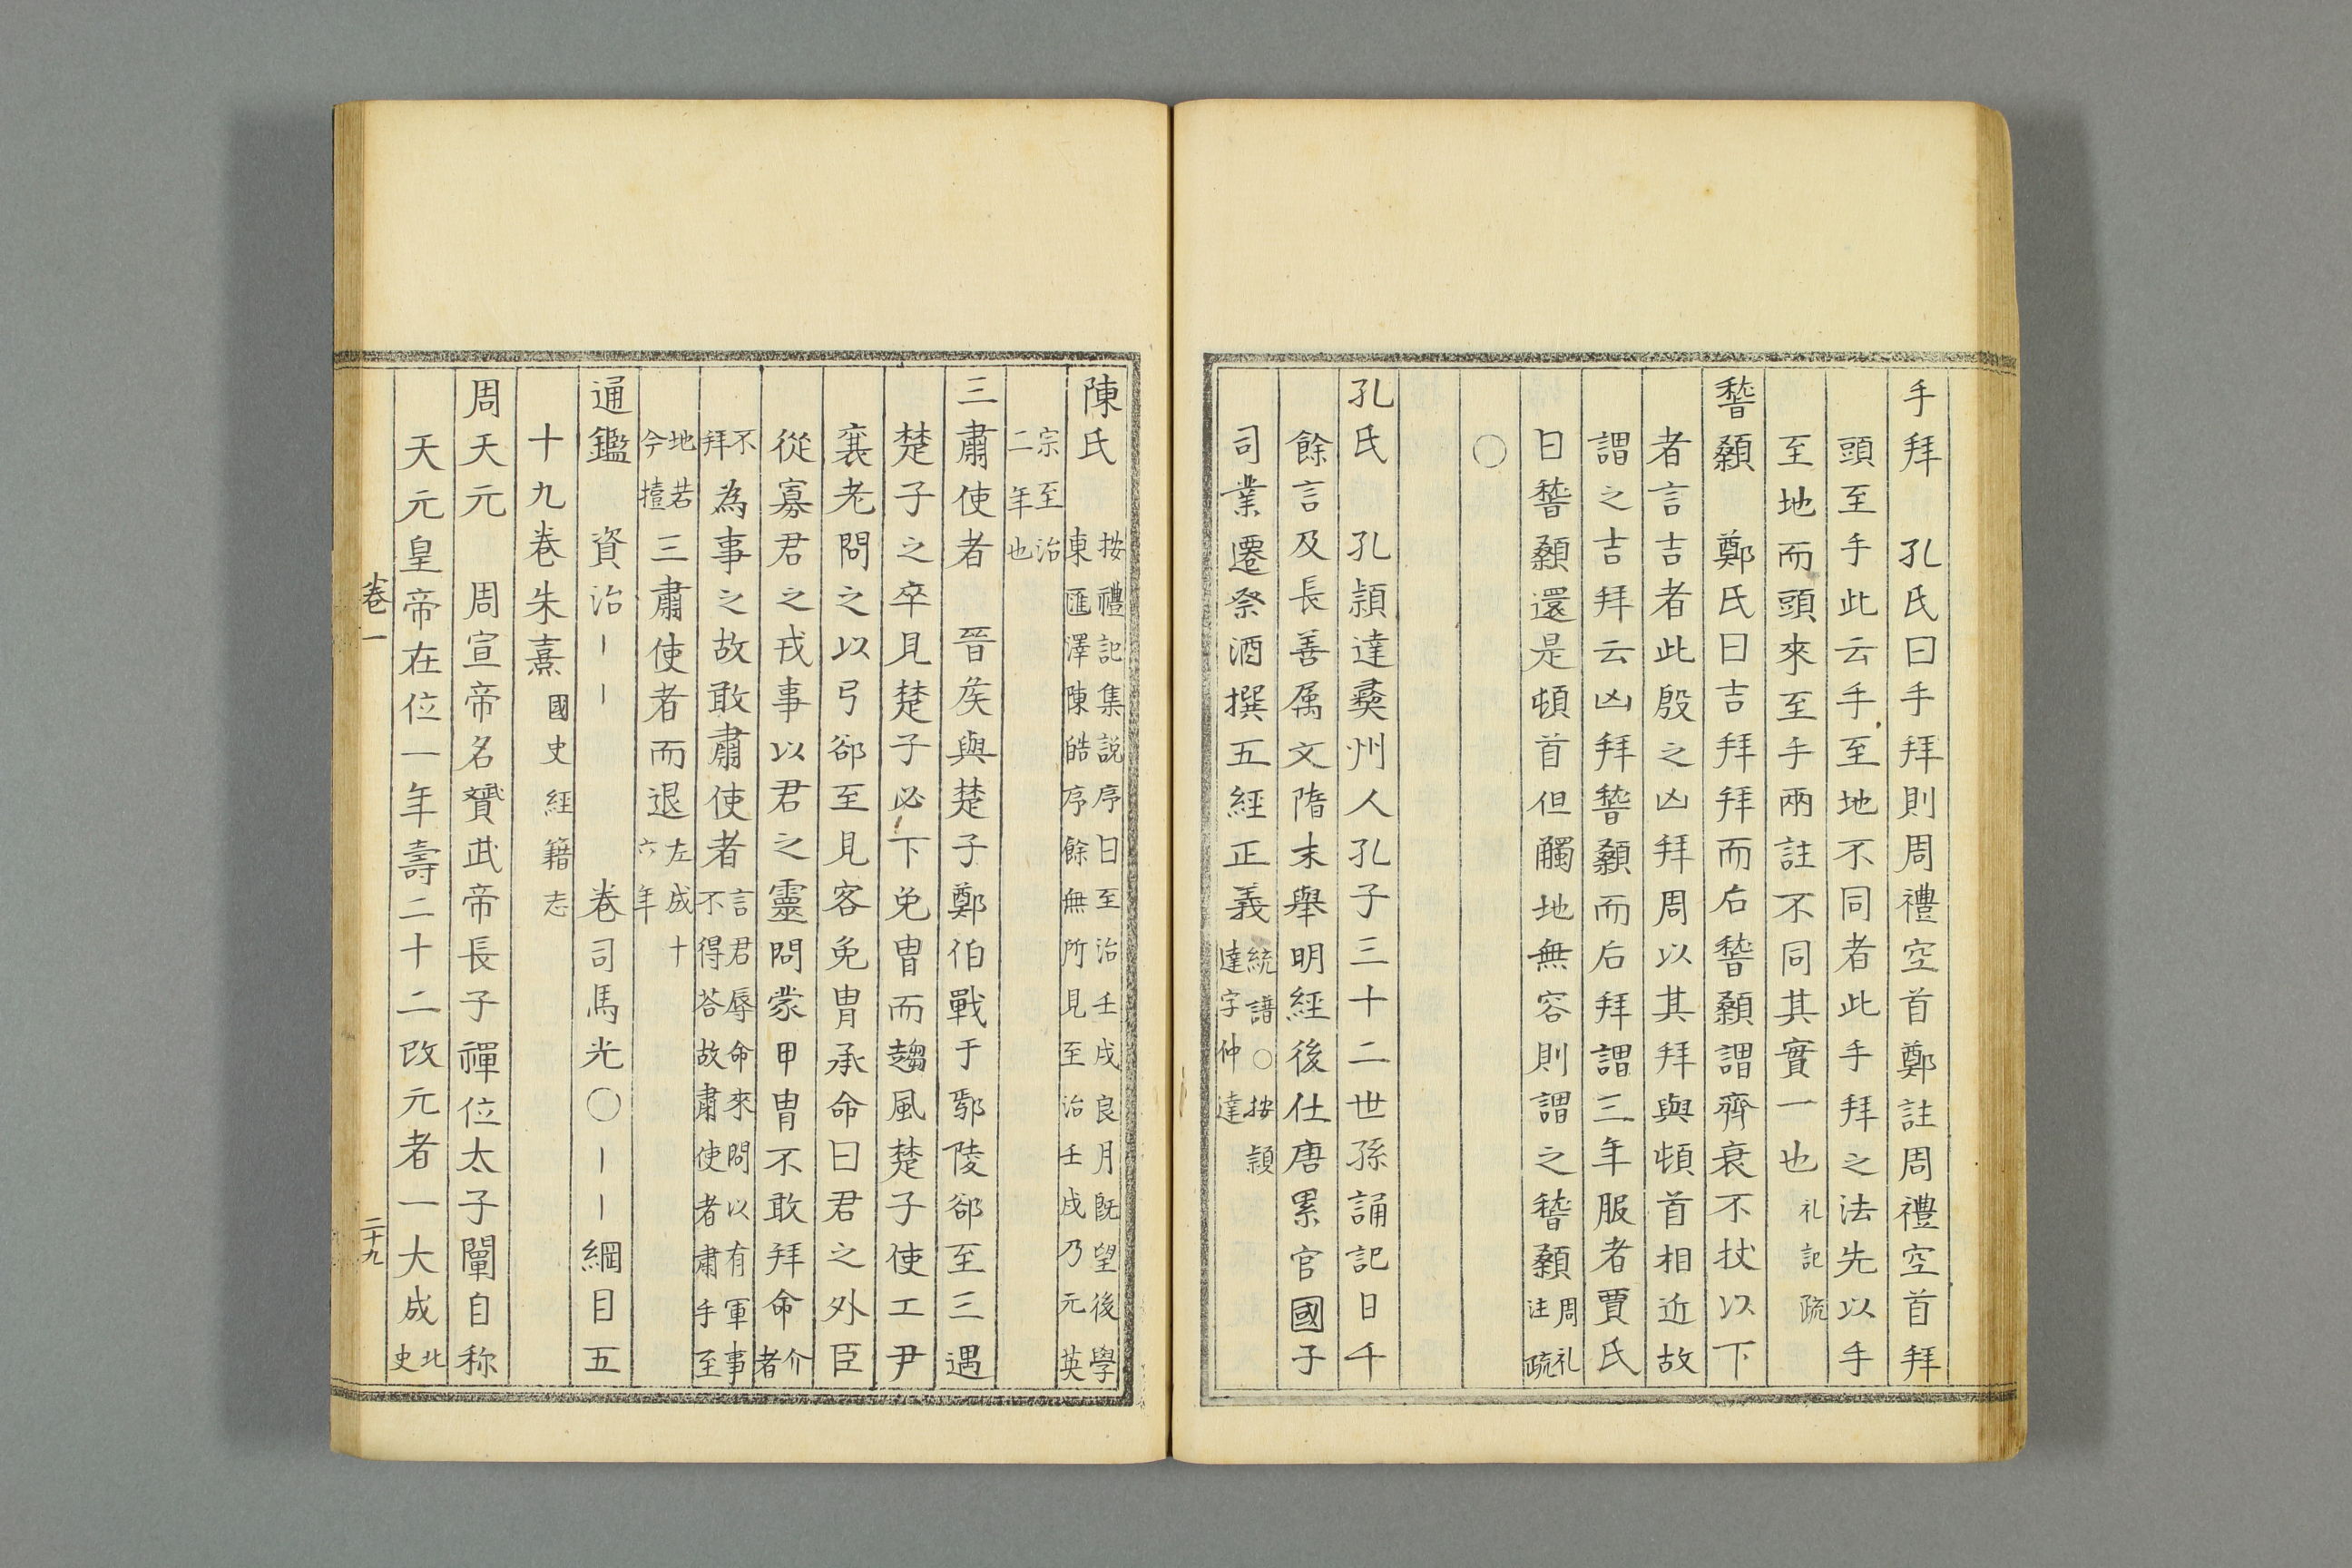 手拜　孔氏曰手拜則周禮空首鄭註周禮空首拜
頭至手此云手至地不同者此手拜之法先以手
至地而頭來至手兩註不同其實一也礼記疏
䭫顙　鄭氏曰吉拜拜而后䭫顙謂齊衰不杖以下
者言吉者此殷之凶拜周以其拜與頓首相近故
謂之吉拜云凶拜䭫顙而后拜謂三年服者賈氏
曰䭫顙還是頓首但觸地無容則謂之䭫顙周礼注疏
○
孔氏　孔頴達兾州人孔子三十二世孫誦記日千
餘言及長善属文隋末舉明經後仕唐累官國子
司業遷祭酒撰五經正義統譜○按頴達字仲達
陳氏　按禮記集說序曰至治壬戌良月既望後學東匯澤陳皓序餘無所見至治壬戌乃元英
宗至治二年也
三肅使者　晉矦與楚子鄭伯戰于鄢陵郤至三遇
楚子之卒見楚子必下免冑而趨風楚子使工尹
襄老問之以弓郤至見客免冑承命曰君之外臣
從寡君之戎事以君之靈問蒙甲冑不敢拜命介者
不拜為事之故敢肅使者言君辱命來問以有軍事不得荅故肅使者肅手至
地若今撎三肅使者而退左成十六年
通鑑　資治〡〡　　　卷司馬光○〡〡綱目五
十九卷朱熹國史經籍志
周天元　周宣帝名贇武帝長子禪位太子闡自称
天元皇帝在位一年壽二十二改元者一大成北史
卷一
二十九